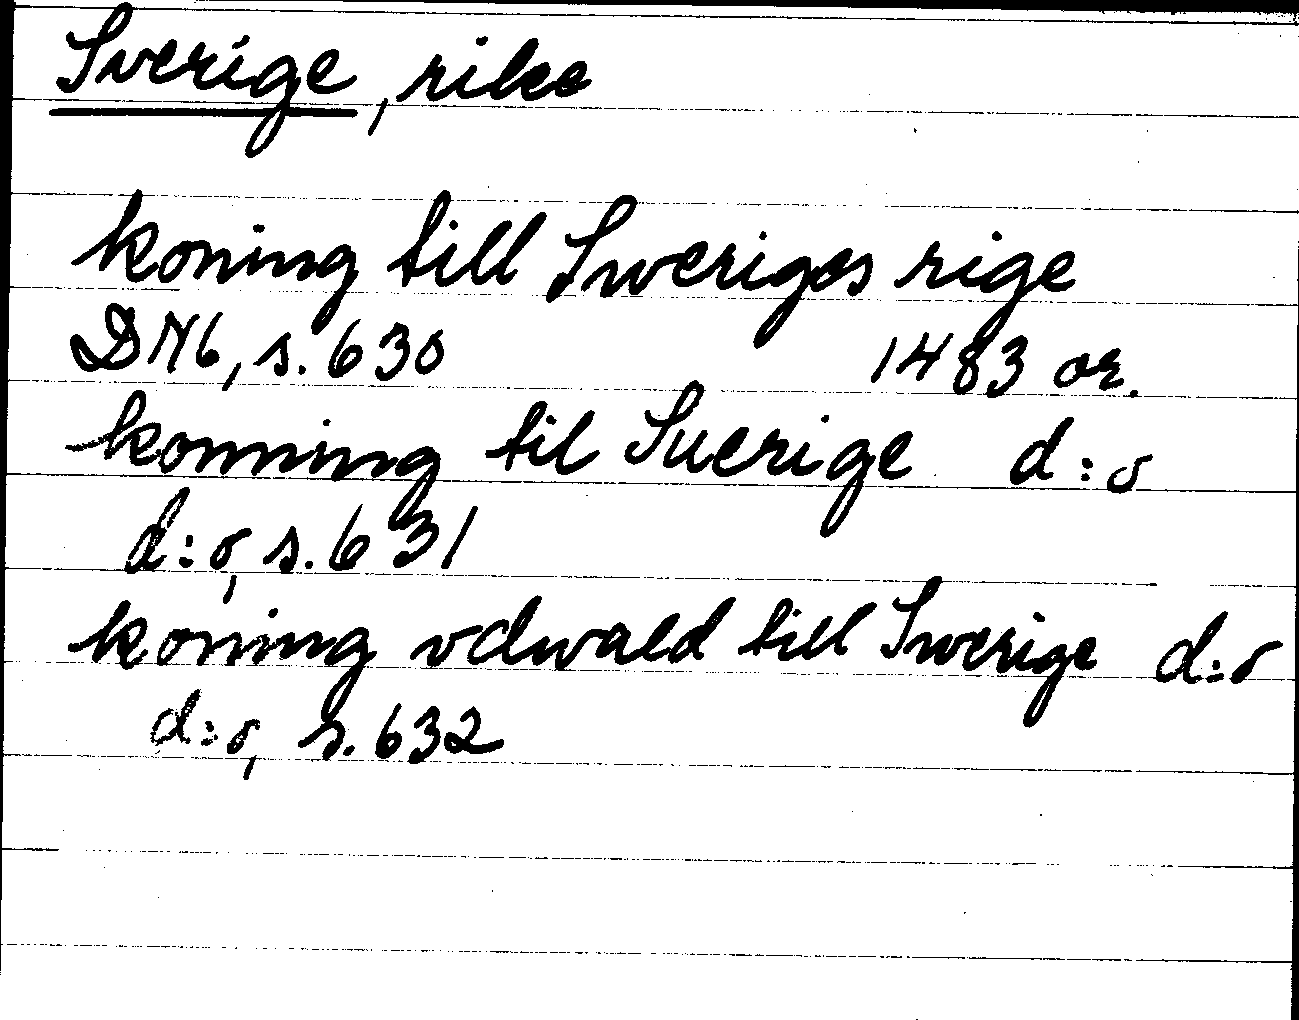 Sverige, rike
koning till Sweriges rige
DN6, s. 630 1483 or.
konning til Suerige d:o
d:o, s. 631
koning vdwald till Swerige d:o
d:o, s. 632